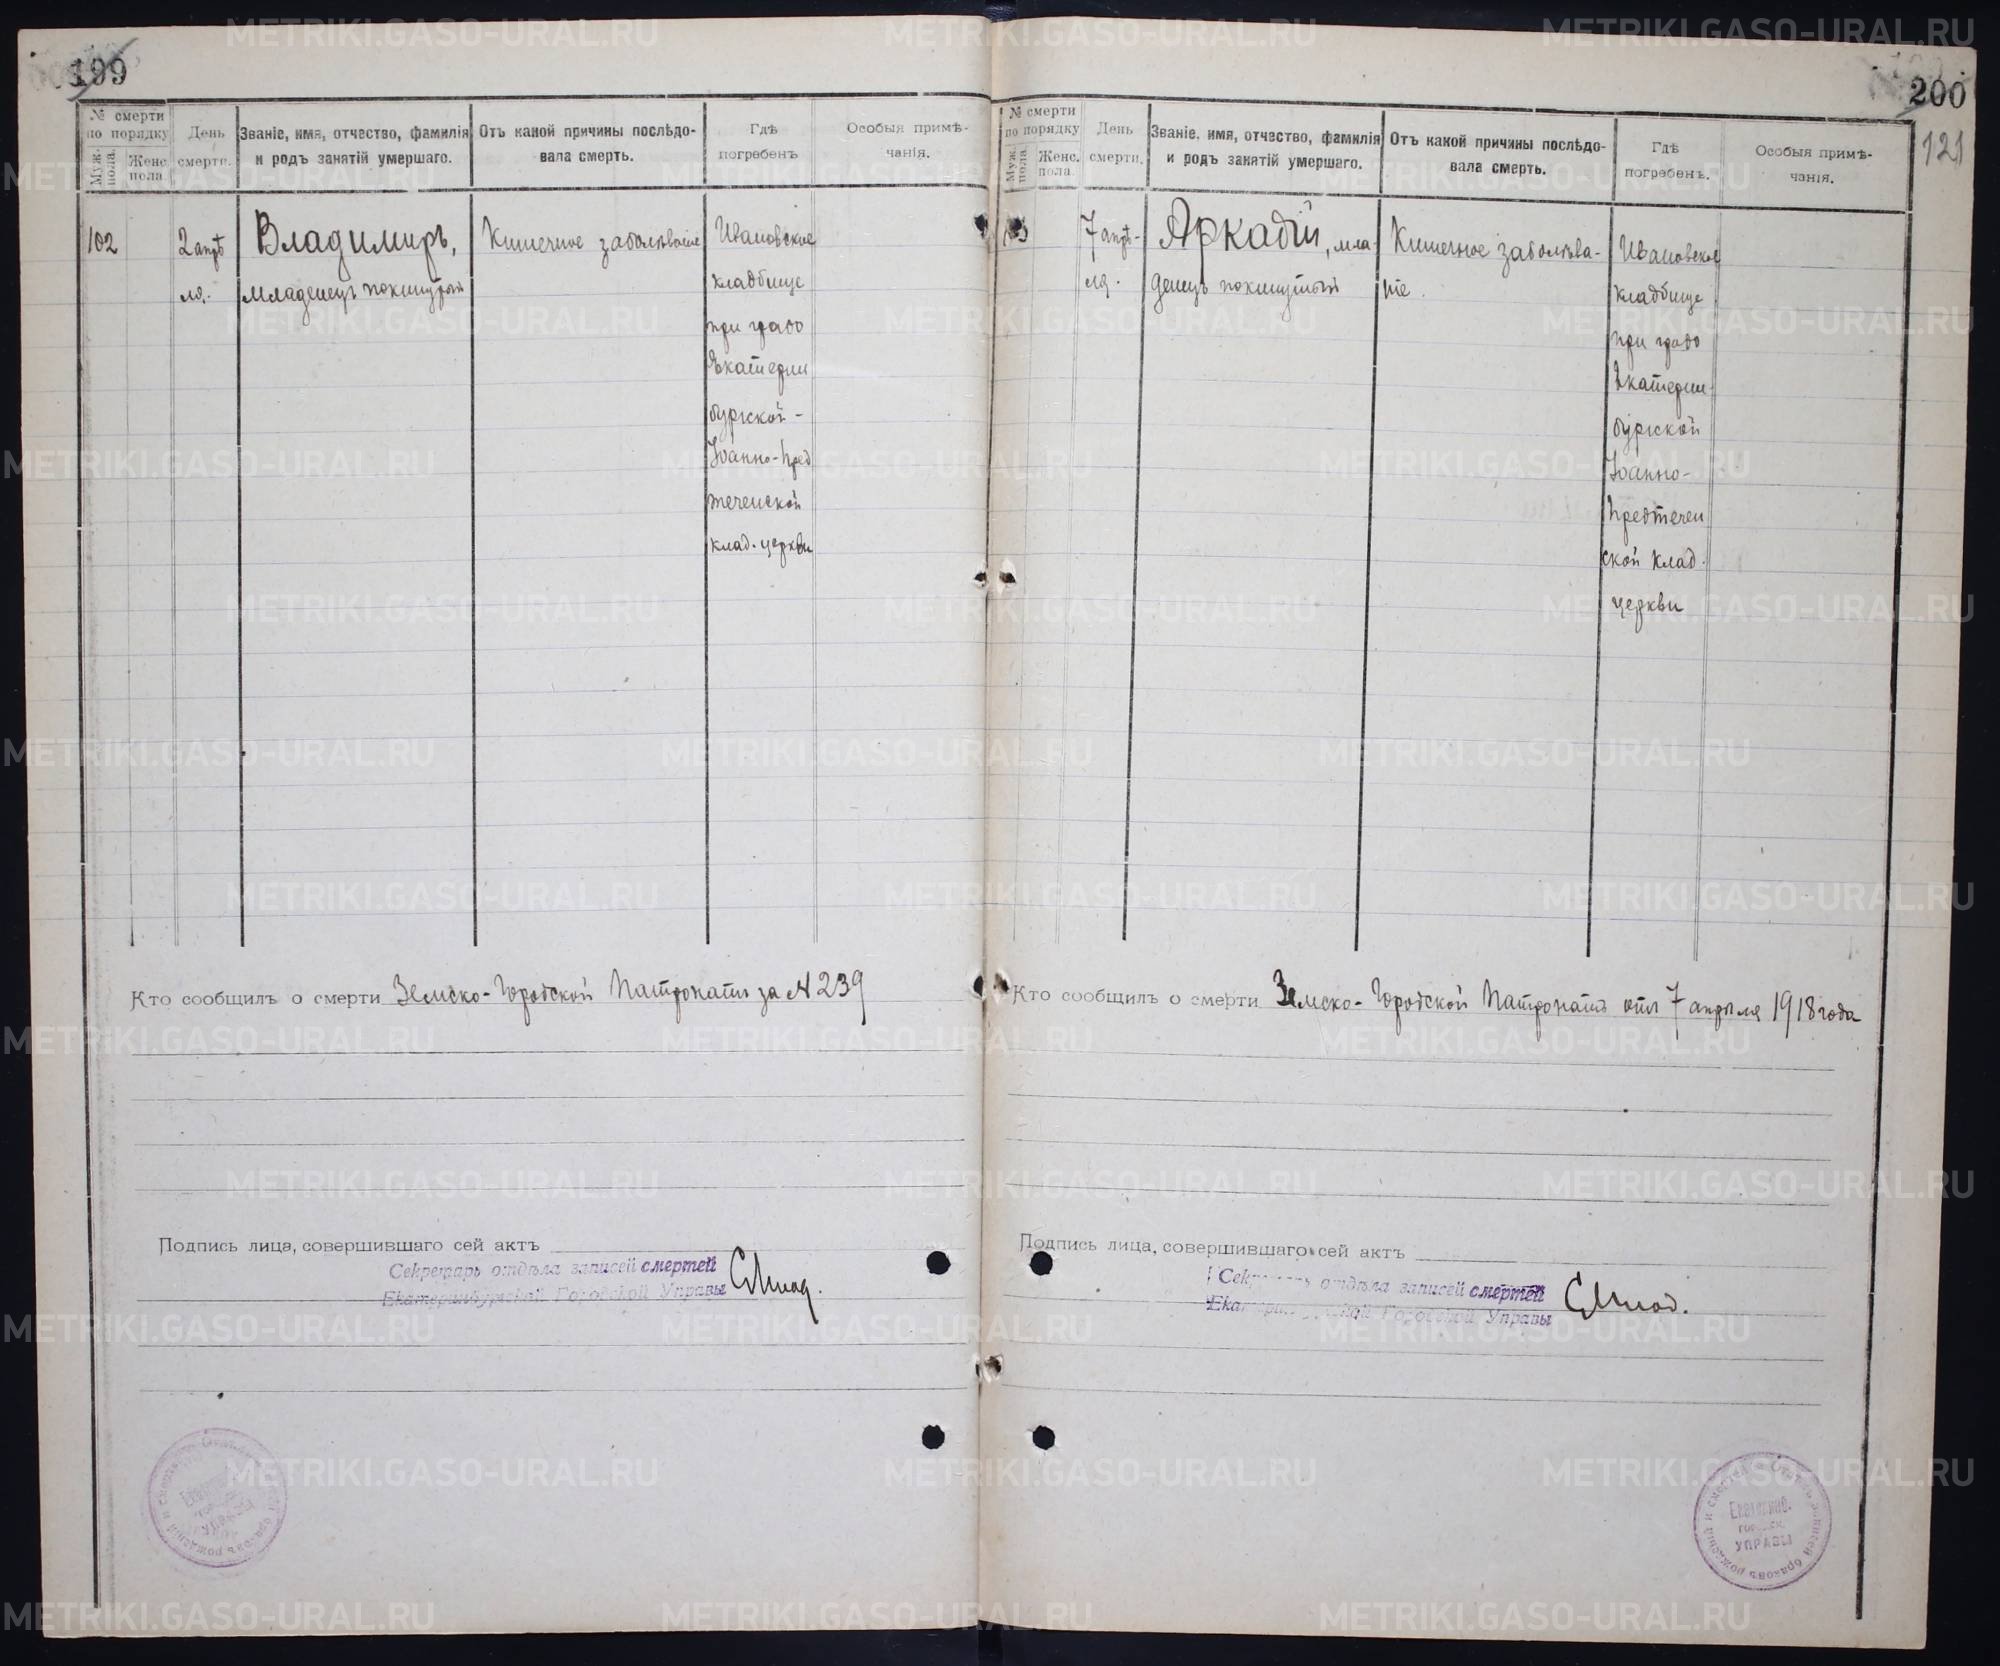 199
№ смерти по порядку
Муж. пола.
Женс. пола.
День смерти.
Званіе, имя, отчество, фамилія и родъ занятій умершаго.
Отъ какой причины послѣдовала смерть.
Гдѣ погребенъ
Особыя примѣчанія.
102
2 апрѣ
ля.
Владимиръ,
младенецъ покинутый
Кишечное заболѣваніе
Ивановское
кладбище
при градо
Екатерин
бургской -
Іоанно-Пред
теченской
клад. церкви
Кто сообщилъ о смерти Земско-Городской Патронатъ за № 239
Подпись лица, совершившаго сей актъ
Секретарь отдѣла записей смертей
Екатеринбургской Городской Управы
200
121
№ смерти по порядку
Муж. пола.
Женс. пола.
День смерти.
Званіе, имя, отчество, фамилія и родъ занятій умершаго.
Отъ какой причины послѣдовала смерть.
Гдѣ погребенъ.
Особыя примѣчанія.
7 апрѣ-
ля.
Аркадій, мла-
денецъ покинутый
Кишечное заболѣва-
ніе.
Ивановское
кладбище
при градо
Екатерин-
бургской
Іоанно-
Предтечен
ской клад.
церкви
Кто сообщилъ о смерти Земско-Городской Патронатъ отъ 7 апрѣля 1918 года
Подпись лица, совершившаго сей актъ
Секретарь отдѣла записей смертей
Екатеринбургской Городской Управы
Екатеринб.
городск.
УПРАВЫ
METRIKI.GASO-URAL.RU